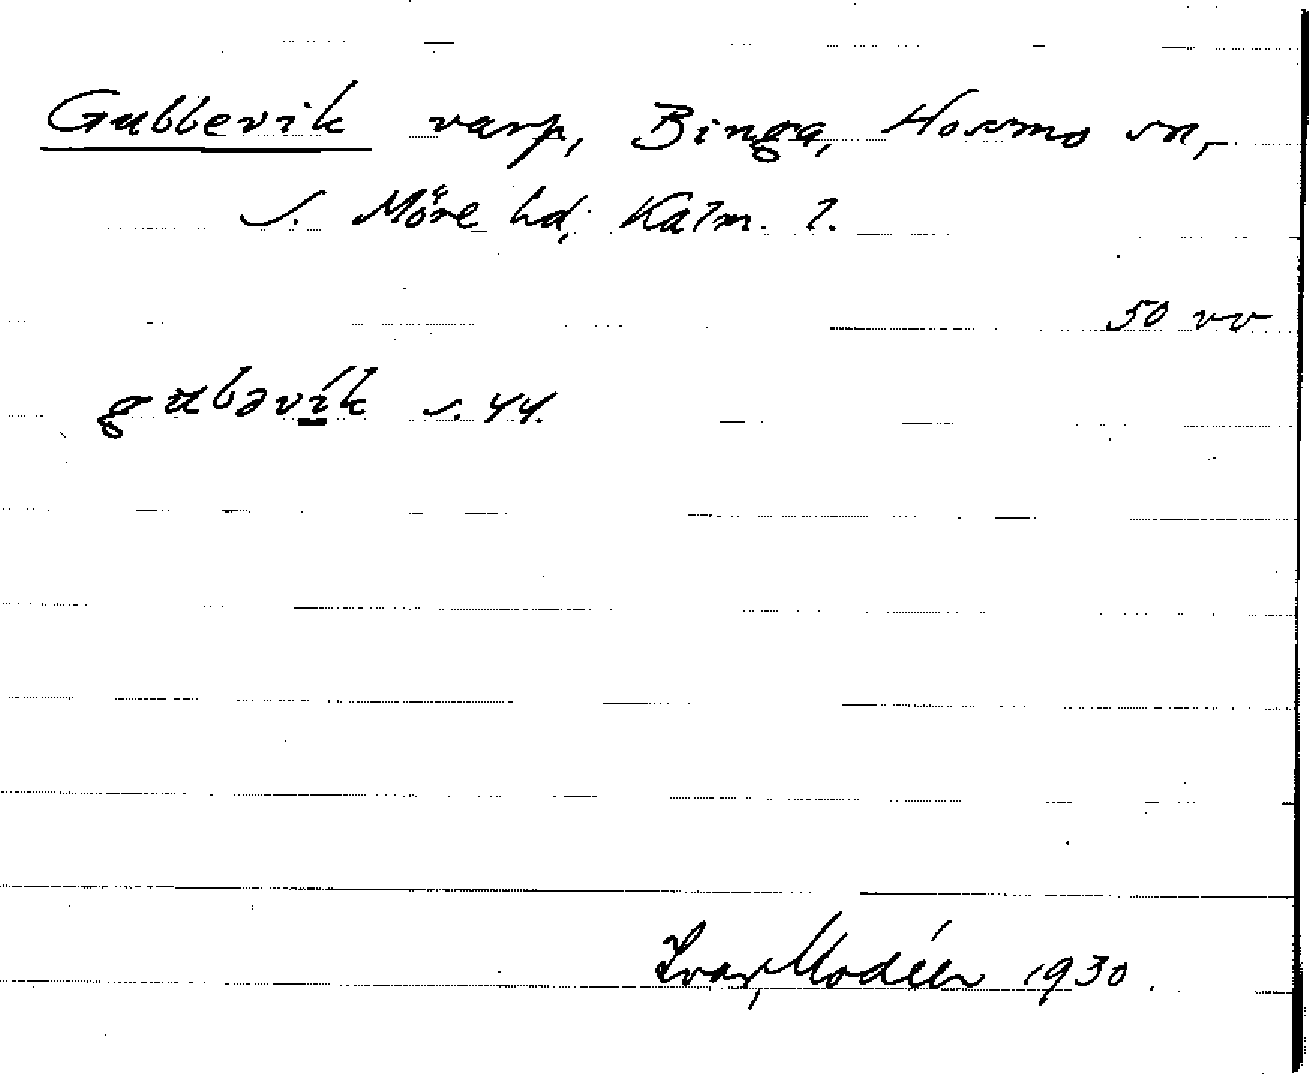 Gubbevik varp, Binga, Hossmo sn,
S. Möre hd, Kalm. l.
50 vv
gubəvik s. 44.
Ivar Modéer 1930.